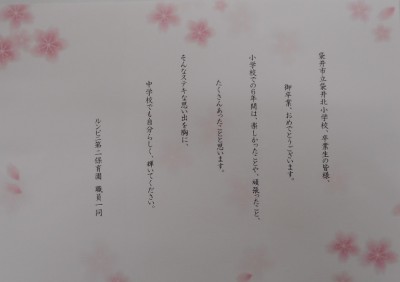 袋井市立袋井北小学校、卒業生の皆様、
御卒業、おめでとうございます。
小学校での6年間は、楽しかったことや、頑張ったこと、
たくさんあったことと思います。
そんなステキな思い出を胸に、
中学校でも自分らしく、輝いてください。
ルンビニ第二保育園　職員一同